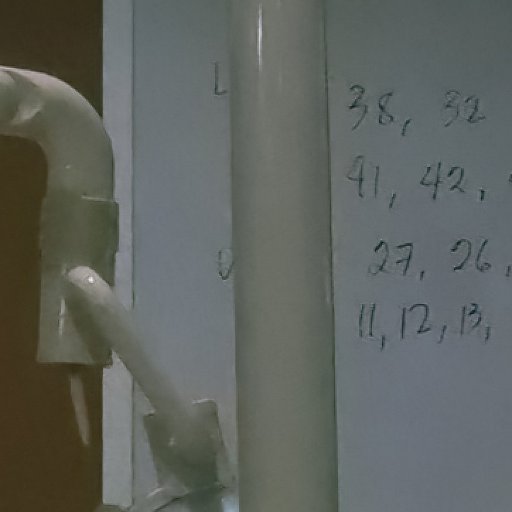 L 38, 32
41, 42,
0 27, 26,
11, 12, 13,